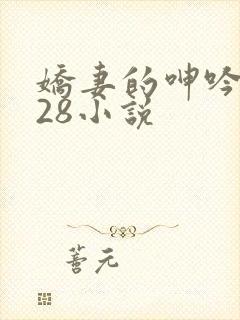 嬌妻的呻吟
28小說
善元